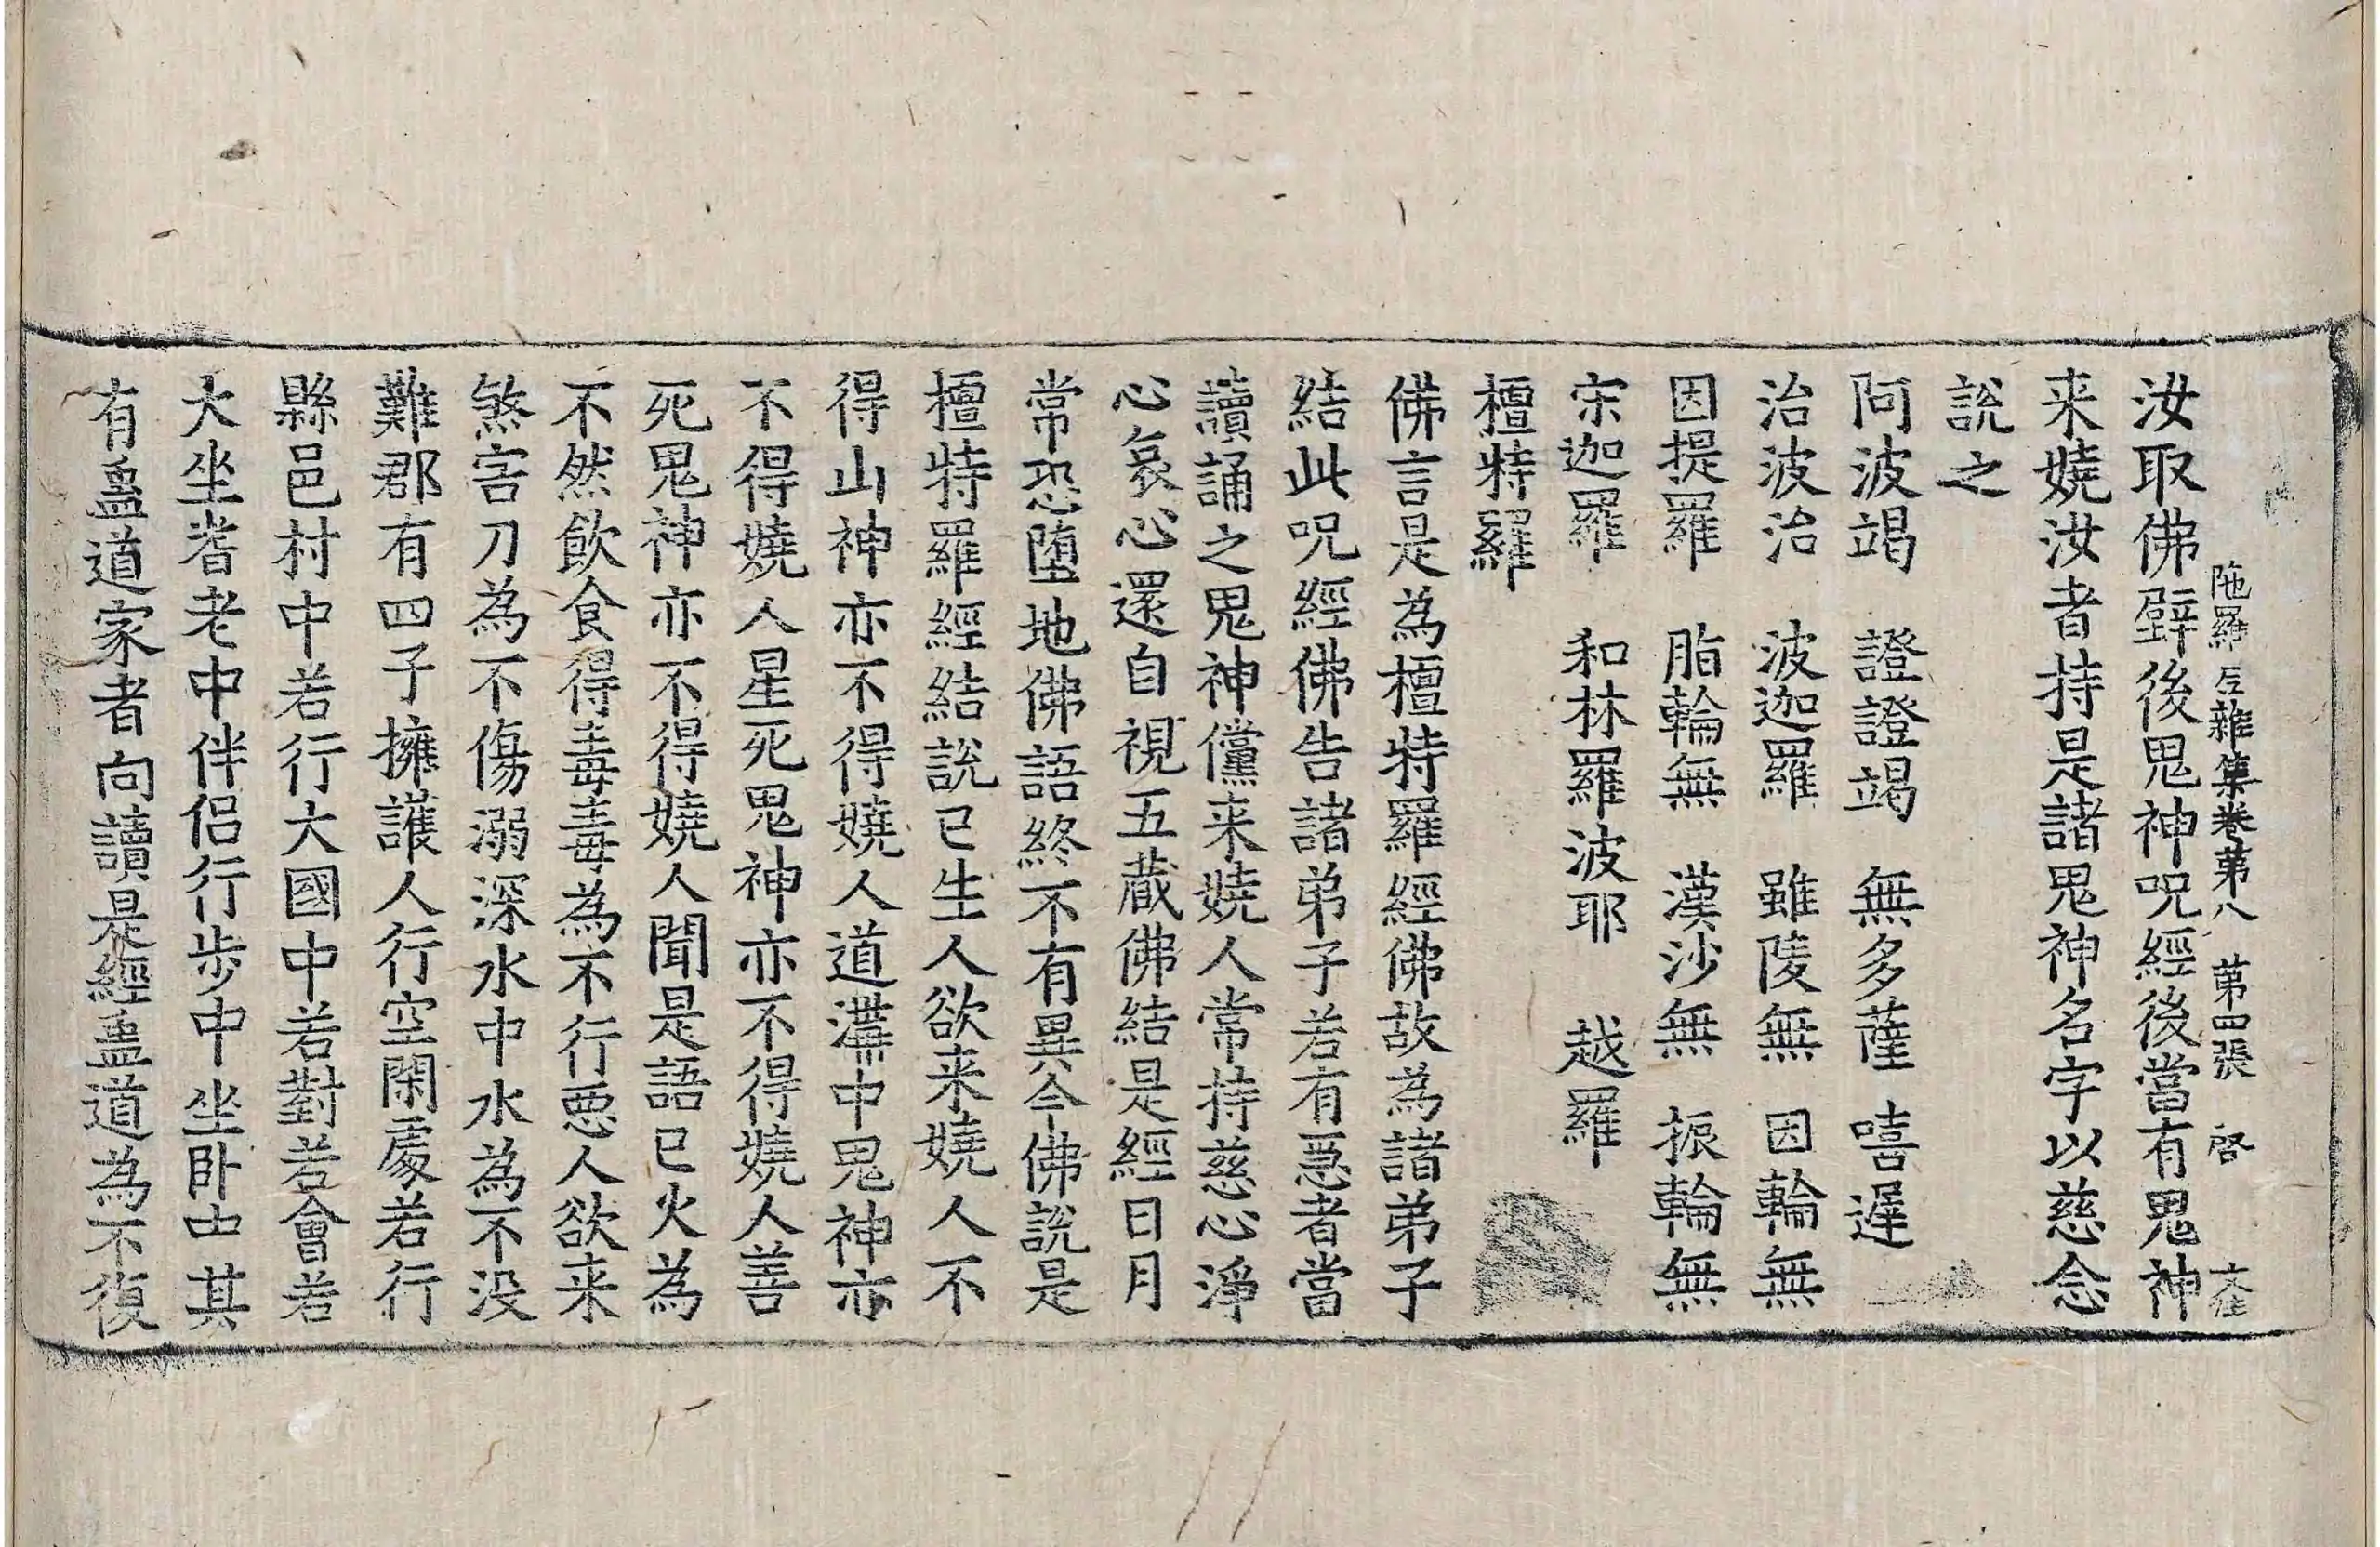 陁羅尼雜集卷第八 第四張 啓
汝取佛壁後鬼神呪經後當有鬼神
来嬈汝者持是諸鬼神名字以慈念
說之
阿波竭 證證竭 無多薩 嘻遅
治波治 波迦羅 雖陵無 因輪無
因提羅 脂輪無 漢沙無 振輪無
宋迦羅 和林羅波耶 越羅
檀特羅
佛言是為檀特羅經佛故為諸弟子
結此呪經佛告諸弟子若有惡者當
讀誦之鬼神儻来嬈人常持慈心淨
心哀心還自視五蔵佛結是經日月
常恐堕地佛語終不有異今佛說是
檀特羅經結說已生人欲来嬈人不
得山神亦不得嬈人道溝中鬼神亦
不得嬈人星死鬼神亦不得嬈人善
死鬼神亦不得嬈人聞是語已火為
不然飲食得毒毒為不行悪人欲来
煞害刀為不傷溺深水中水為不没
難郡有四子擁護人行空閑處若行
縣邑村中若行大國中若對若會若
大坐耆老中伴侣行步中坐卧中其
有蠱道家者向讀是經蠱道為不復